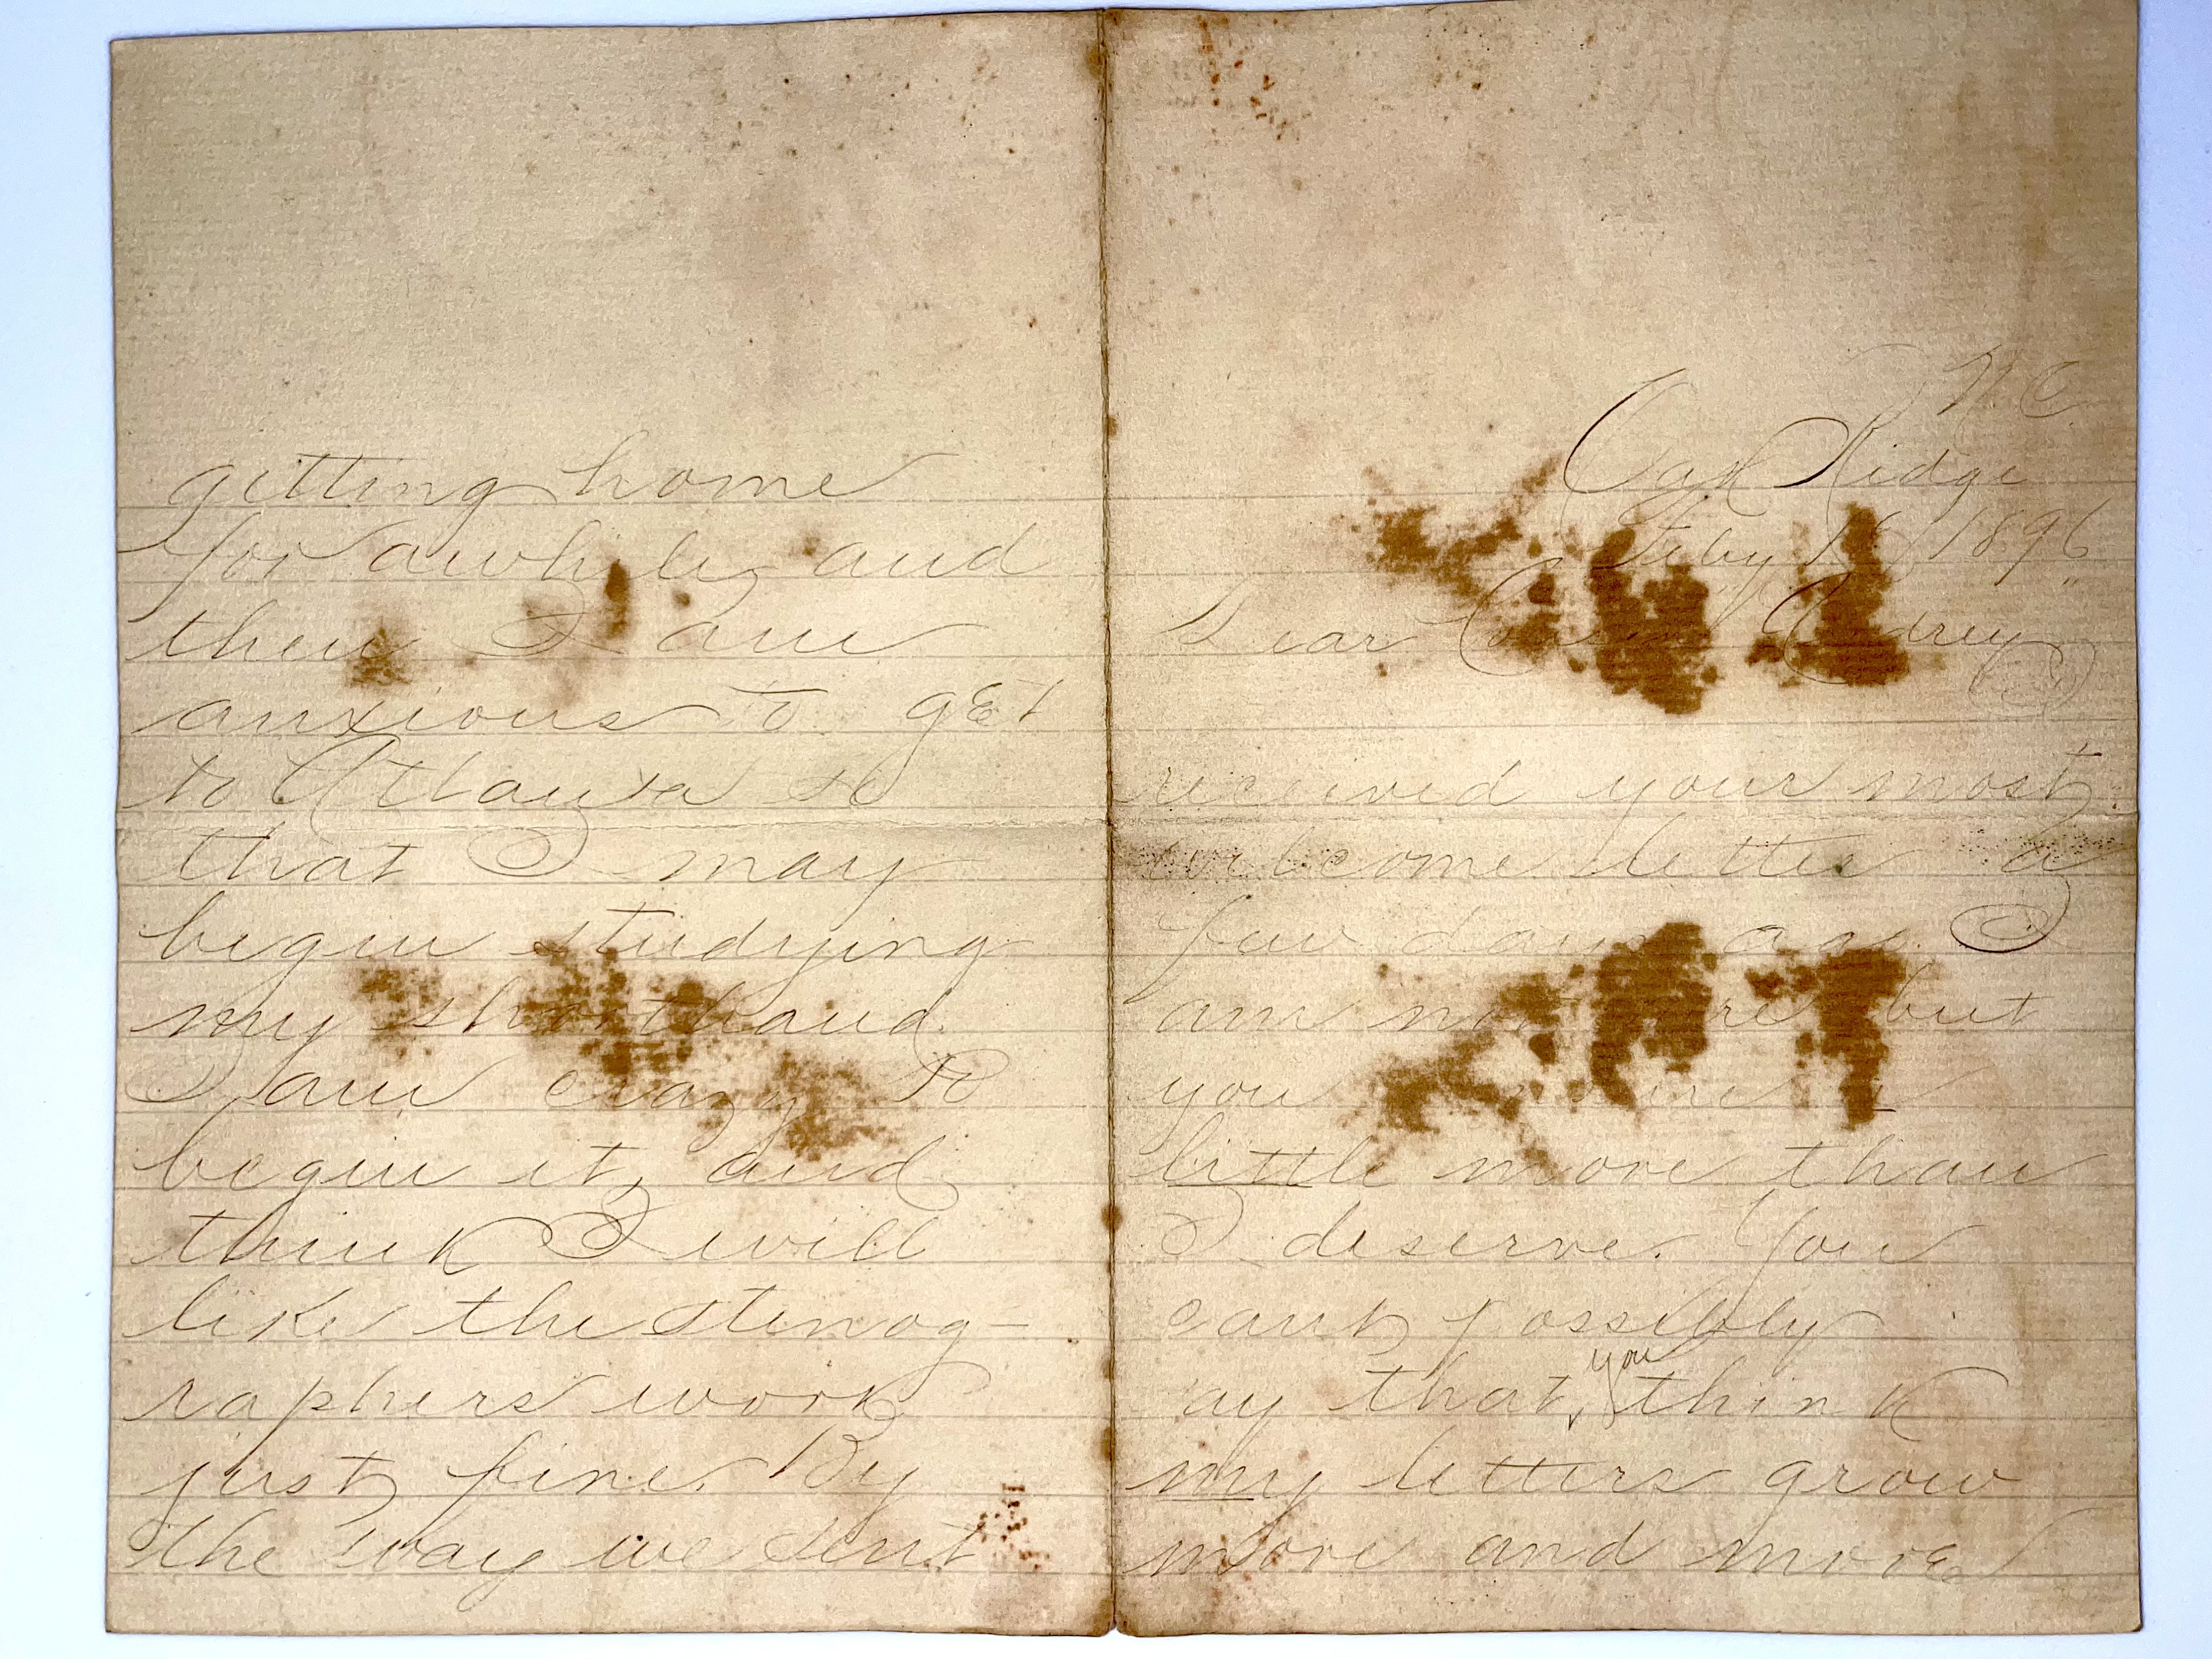 N.C.
Oak Ridge
Feby 1896
Dear Cousin Audrey
received your most
welcome letter a
few days ago. I
am not sure but
you
little more than
I deserve. You
cant possibly
say that you think
my letters grow
more and more
getting home
for awhile, and
then I am
anxious to get
to Atlanta so
that I may
begin studying
my shorthand.
I am crazy to
begin it, and
think I will
like the stenog-
raphers work
just fine. By
the way we sent